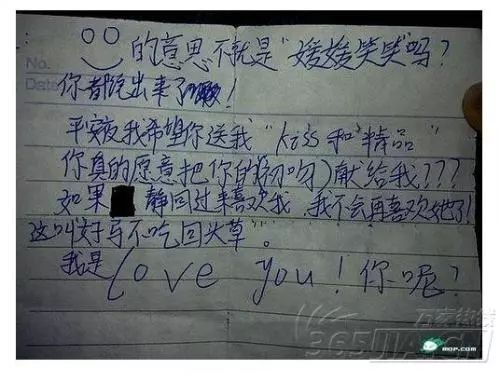 的意思不就是"媛媛笑笑"吗?
No.
Date
你都说出来了!
平安夜我希望你送我"kiss和精品"
你真的愿意把你的(初吻)献给我???
如果 静回过来喜欢我,我不会再喜欢她了!
这叫好马不吃回头草。
我是 Love you!你呢?
万家热线
365JIA.CN
MOP.COM